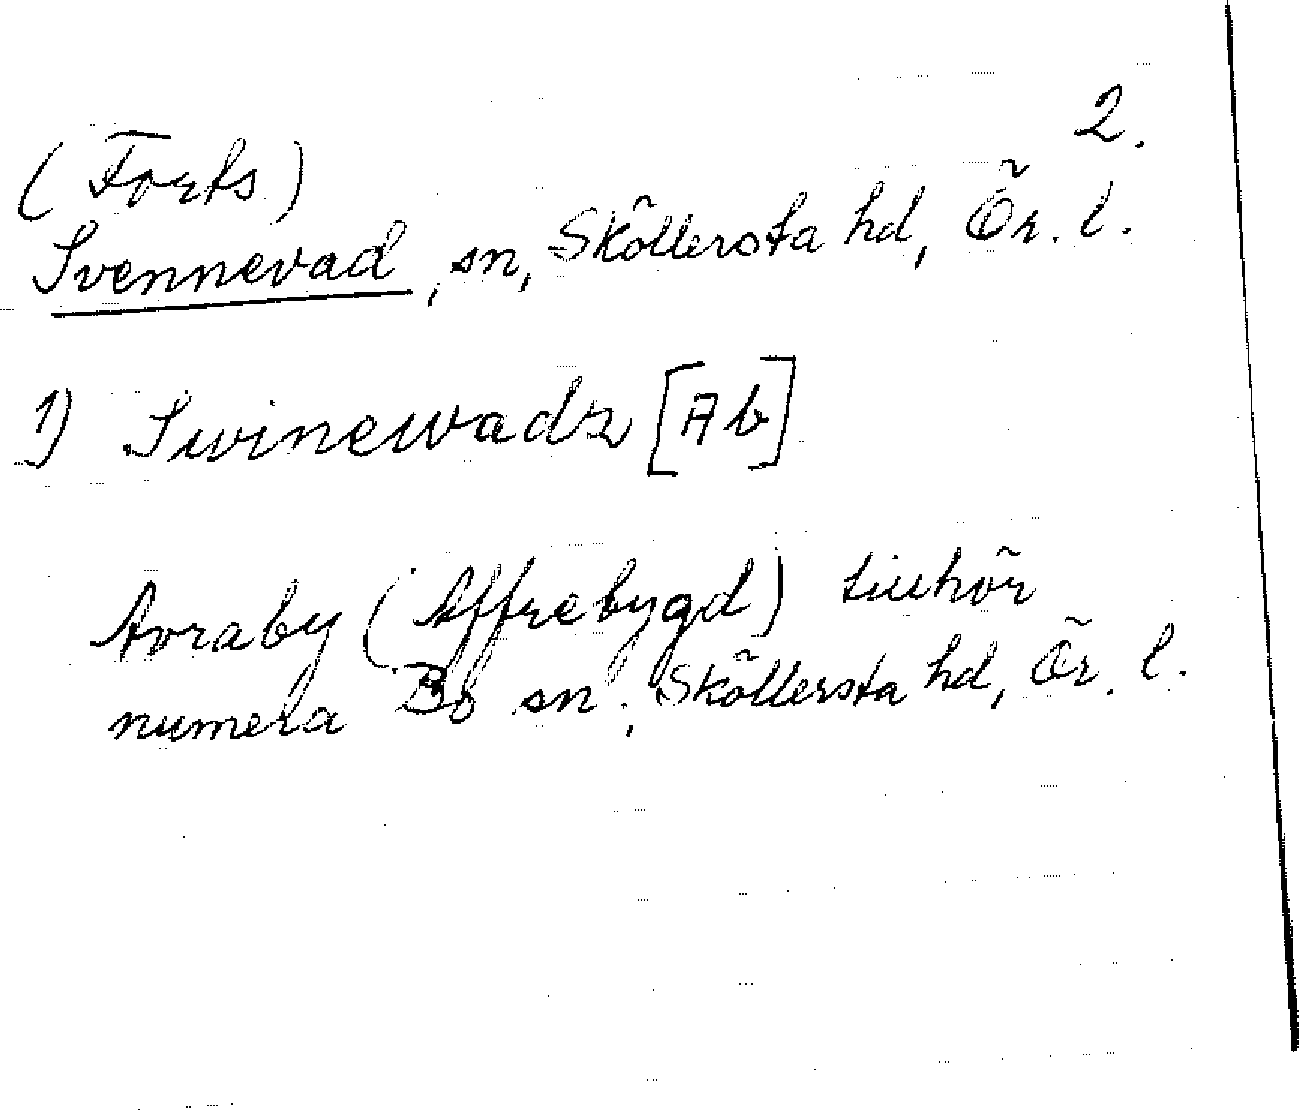 2.
(Forts)
Svennevad, sn, Sköllersta hd, Ör. l.
1) Swinewadz [Ab]
Avraby (Affrebygd) tillhör
numera Bo sn, Sköllersta hd, Ör. l.